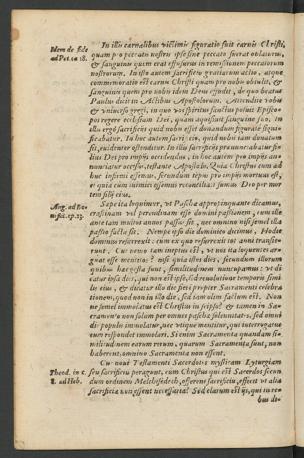 In illis carnalibus victimis figuratio fuit carnis Christi,
Idem de fide
ad Pet. ca 18.
quam pro peccatis nostris ipse sine peccato fuerat oblaturus,
& sanguinis quem erat effusurus in remissionem peccatorum
nostrorum. In isto autem sacrificio gratiarum actio, atque
commemoratio est carnis Christi quam pro nobis obtulit, &
sanguinis quem pro nobis idem Deus effudit, de quo beatus
Paulus dicit in Actibus Apostolorum. Attendite vobis
& vniuerso gregi, in quo vos spiritus sanctus posuit Episco-
pos regere ecclesiam Dei, quam aquisiuit sanguine suo. In
illis ergò sacrificijs quid nobis esset donandum figuratè signi-
ficabatur. In hoc autem sacrificio, quid nobis iam donatum
sit, euidenter ostenditur. In illis sacrificijs prænunciabatur fi-
lius Dei pro impijs occidendus, in hoc autem pro impijs an-
nunciatur occisus, testante Apostolo. Quia Christus cum ad
huc infirmi essemus, secundum tempus pro impijs mortuus est,
& quia cum inimici essemus reconciliati sumus Deo per mor
tem filij eius.
Aug. ad Bo-
nifac. ep. 23.
Sæpe ita loquimur, vt Pascha appropinquante dicamus,
crastinam vel perendinam esse domini passionem, cum ille
ante tam multos annos passus sit, nec omnino nisi semel illa
passio facta sit. Nempe ipso die dominico dicimus, Hodie
dominus resurrexit cum ex quo resurrexit tot anni transie-
runt. Cur nemo tam ineptus est, vt nos ita loquentes ar-
guat esse mentitos? nisi quia istos dies, secundum illorum
quibus hæc gesta sunt, similitudinem nuncupamus: vt di
catur ipse dies, qui non est ipse, sed reuolutione temporis simi
lis eius, & dicatur illo die fieri propter Sacramenti celebra
tionem, quod non in illo die, sed iam olim factum est. Non
ne semel immolatus est Christus in seipso? & tamen in Sa-
cramento non solum per omnes paschæ solennitates, sed omni
die populis immolatur, nec vtique mentitur, qui interrogatus
eum respondet immolari. Si enim Sacramenta quandam si-
militudinem earum rerum, quarum Sacramenta sunt, non
haberent, omnino Sacramenta non essent.
Cur noui Testamenti Sacerdotes mysticam Lyturgiam
Theod. in c.
8. ad Heb.
seu sacrificium peragunt, cum Christus qui est Sacerdos secun
dum ordinem Melchisedech, offerens sacrificium, effecit vt alia
sacrificia non essent necessaria? Sed clarum est ijs, qui in re-
bus di-